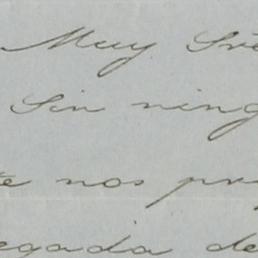 Muy Sre
Sin ning
te nos pro
egada de